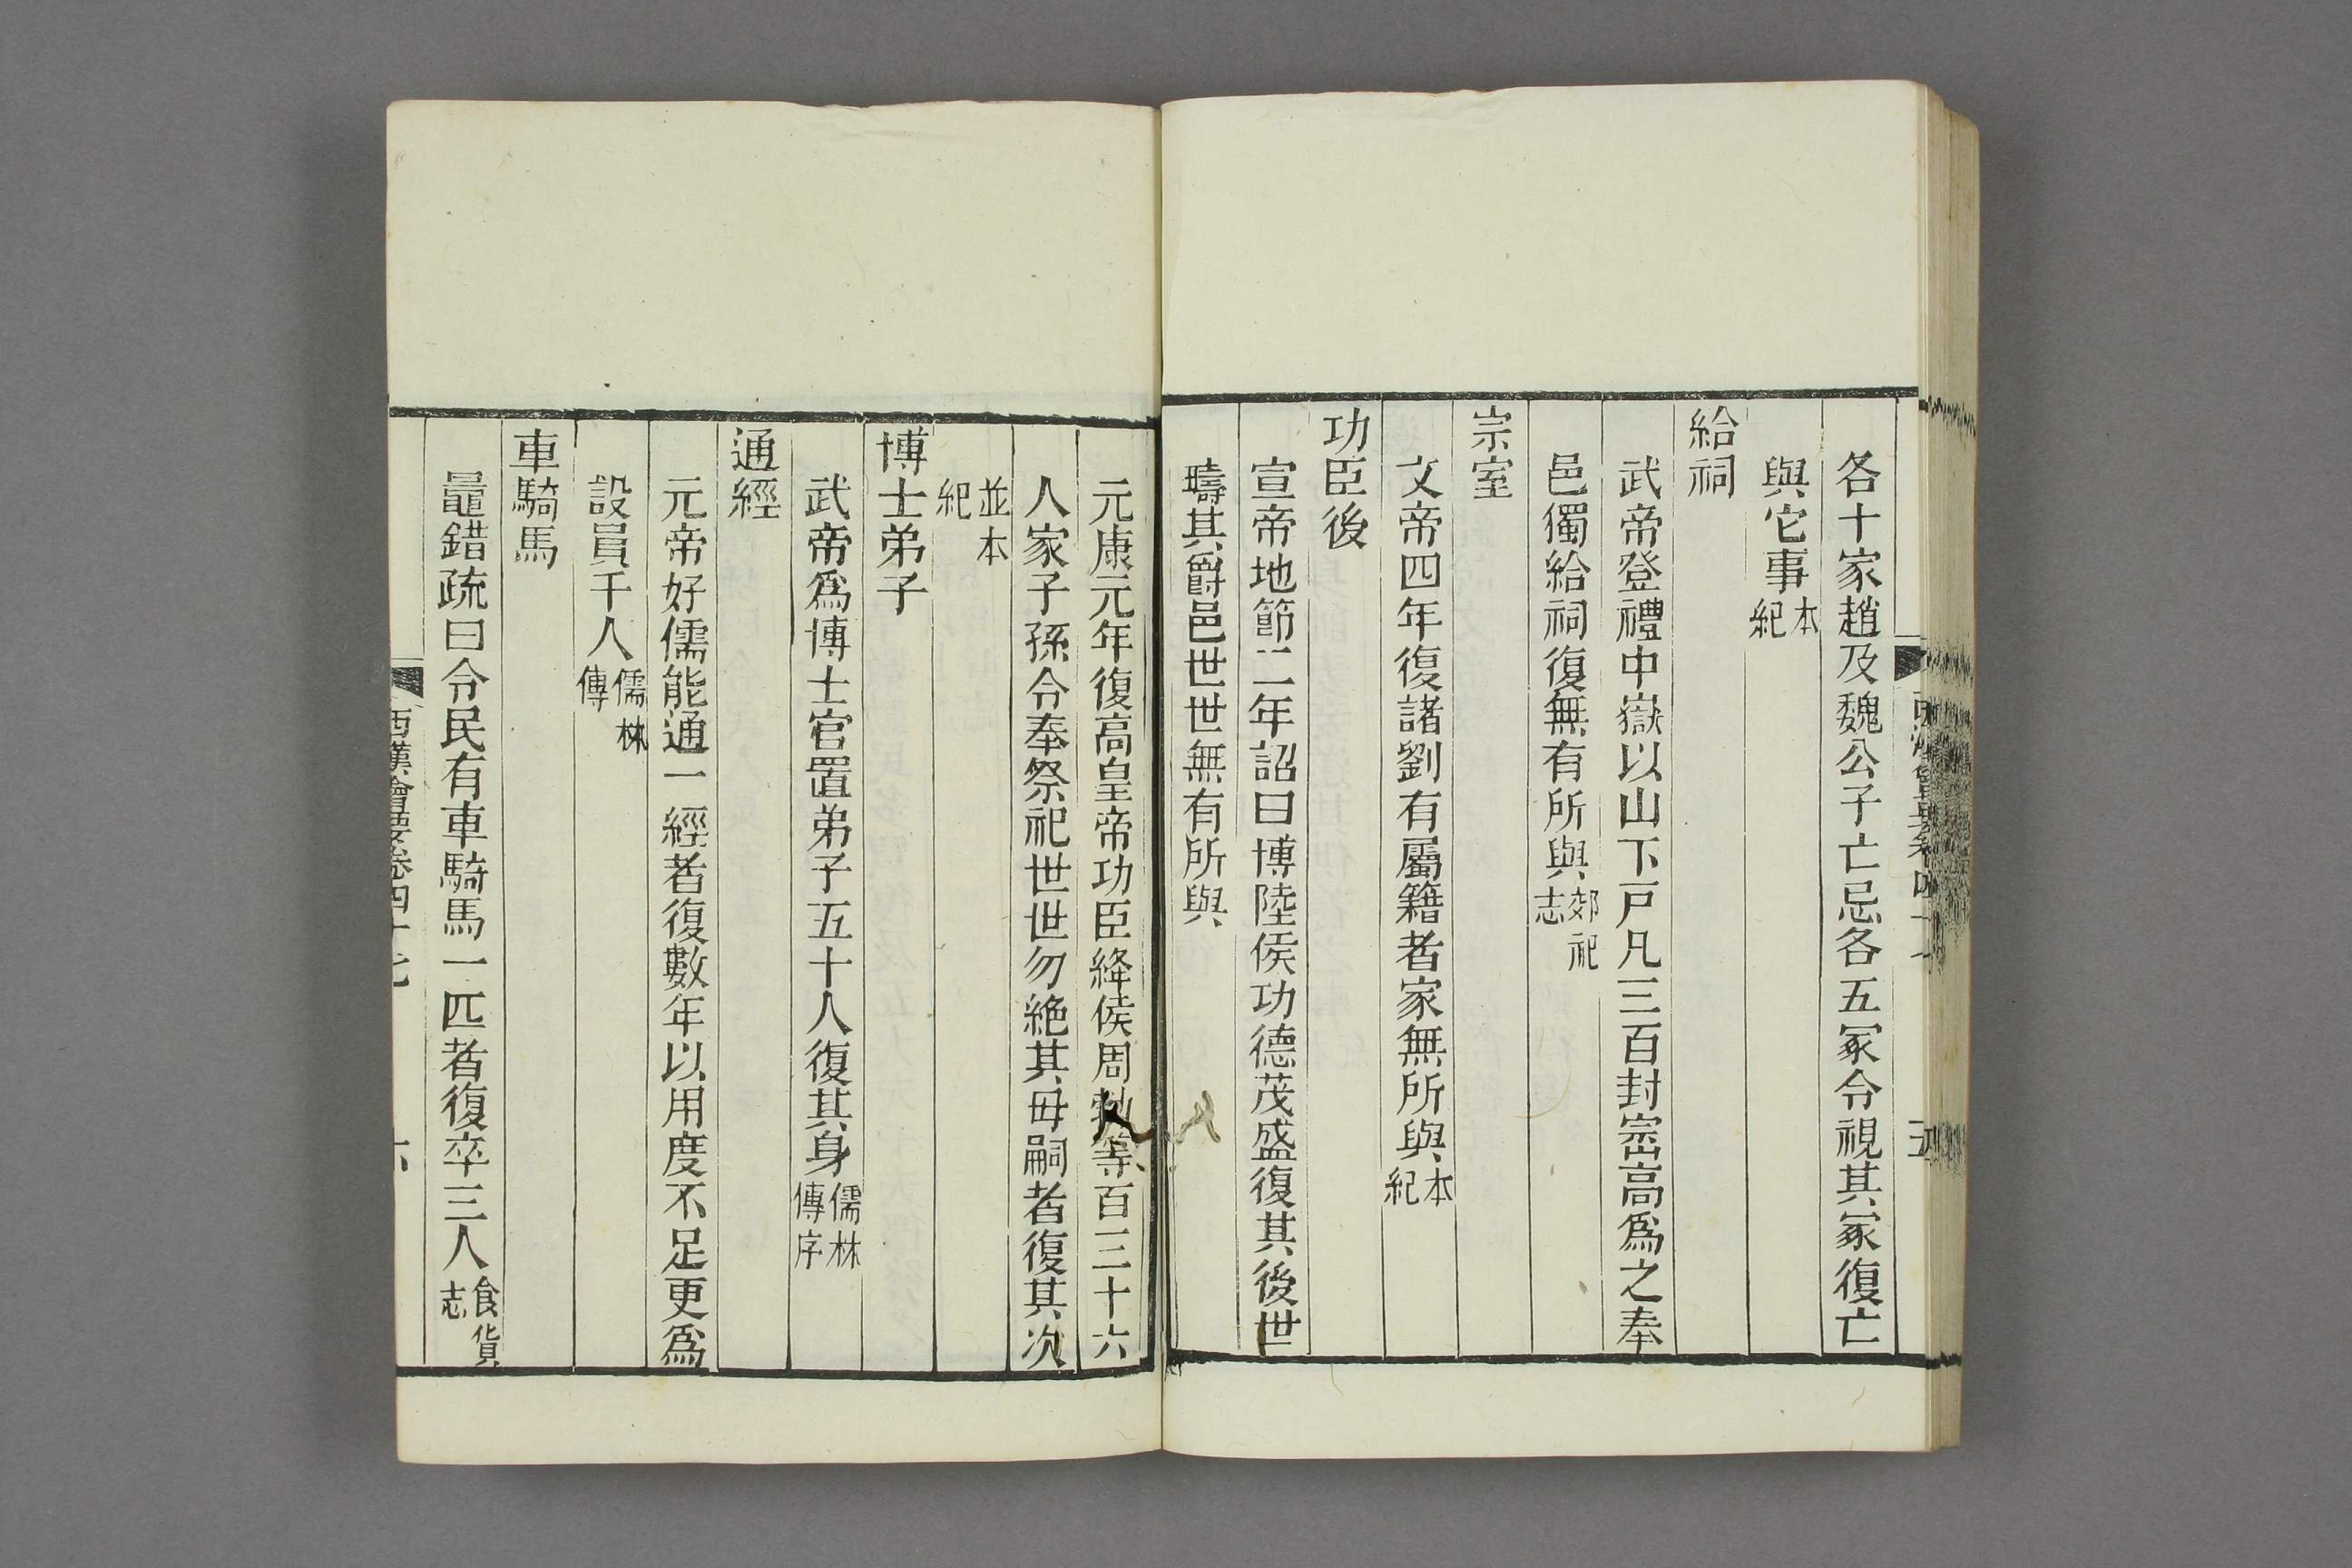 各十家趙及魏公子亡忌各五冢令視其冢復亡
與它事本紀
給祠
武帝登禮中嶽以山下戸凡三百封崈高爲之奉
邑獨給祠復無有所與郊祀志
宗室
文帝四年復諸劉有屬籍者家無所與本紀
功臣後
宣帝地節二年詔曰博陸侯功德茂盛復其後世
疇其爵邑世世無有所與
元康元年復高皇帝功臣絳侯周勃等百三十六
人家子孫令奉祭祀世世勿絶其毋嗣者復其次
並本紀
博士弟子
武帝爲博士官置弟子五十人復其身儒林傳序
通經
元帝好儒能通一經者復數年以用度不足更爲
設員千人儒林傳
車騎馬
鼂錯疏曰令民有車騎馬一匹者復卒三人食貨志
西漢會要卷四十七